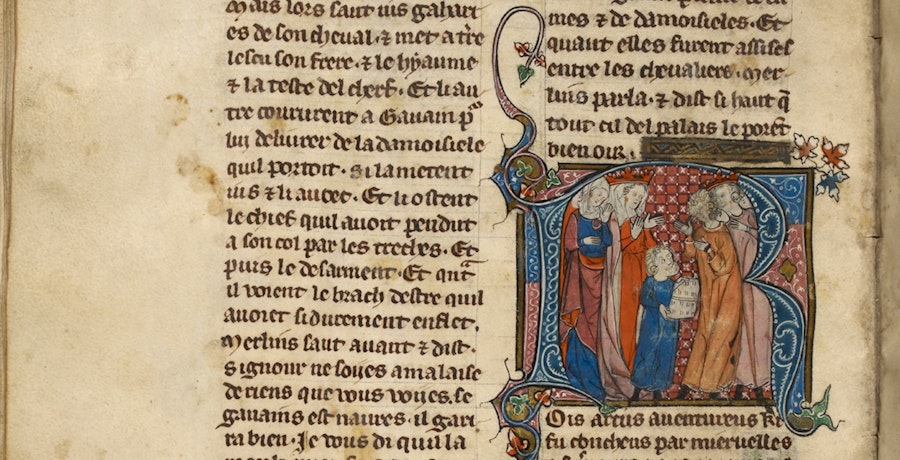 mais lors saut ius gahari
es de son cheual · ⁊ met a tͤre
le seu son frere · ⁊ le hyaume
⁊ la teste del cherf · Et li au
tre coururent a Gauain pͬ
lui deliurer de la damoisiele
quil portoit · si la metent
ius ⁊ li autet · Et li ostent
le chief quil auoit pendut
a son col par les treches · Et
puis le desarment · Et qnͣt
il voient le brach destre quil
auoiet si durement enflet ,
merlins saut auant ⁊ dist ·
signour ne soues a malaise
de riens que vous voyes . se
gauains est naures · il gari
ra bien · Je vous di quil la
mes ⁊ de damoisieles · Et
quant elles furent assises
entre les cheualiers · mer
lins parla · ⁊ dist si haut q̄
tout cil del palais le porēt
bien oir ·
R
Ois artus auentureus ki
fu concheus par meruelles